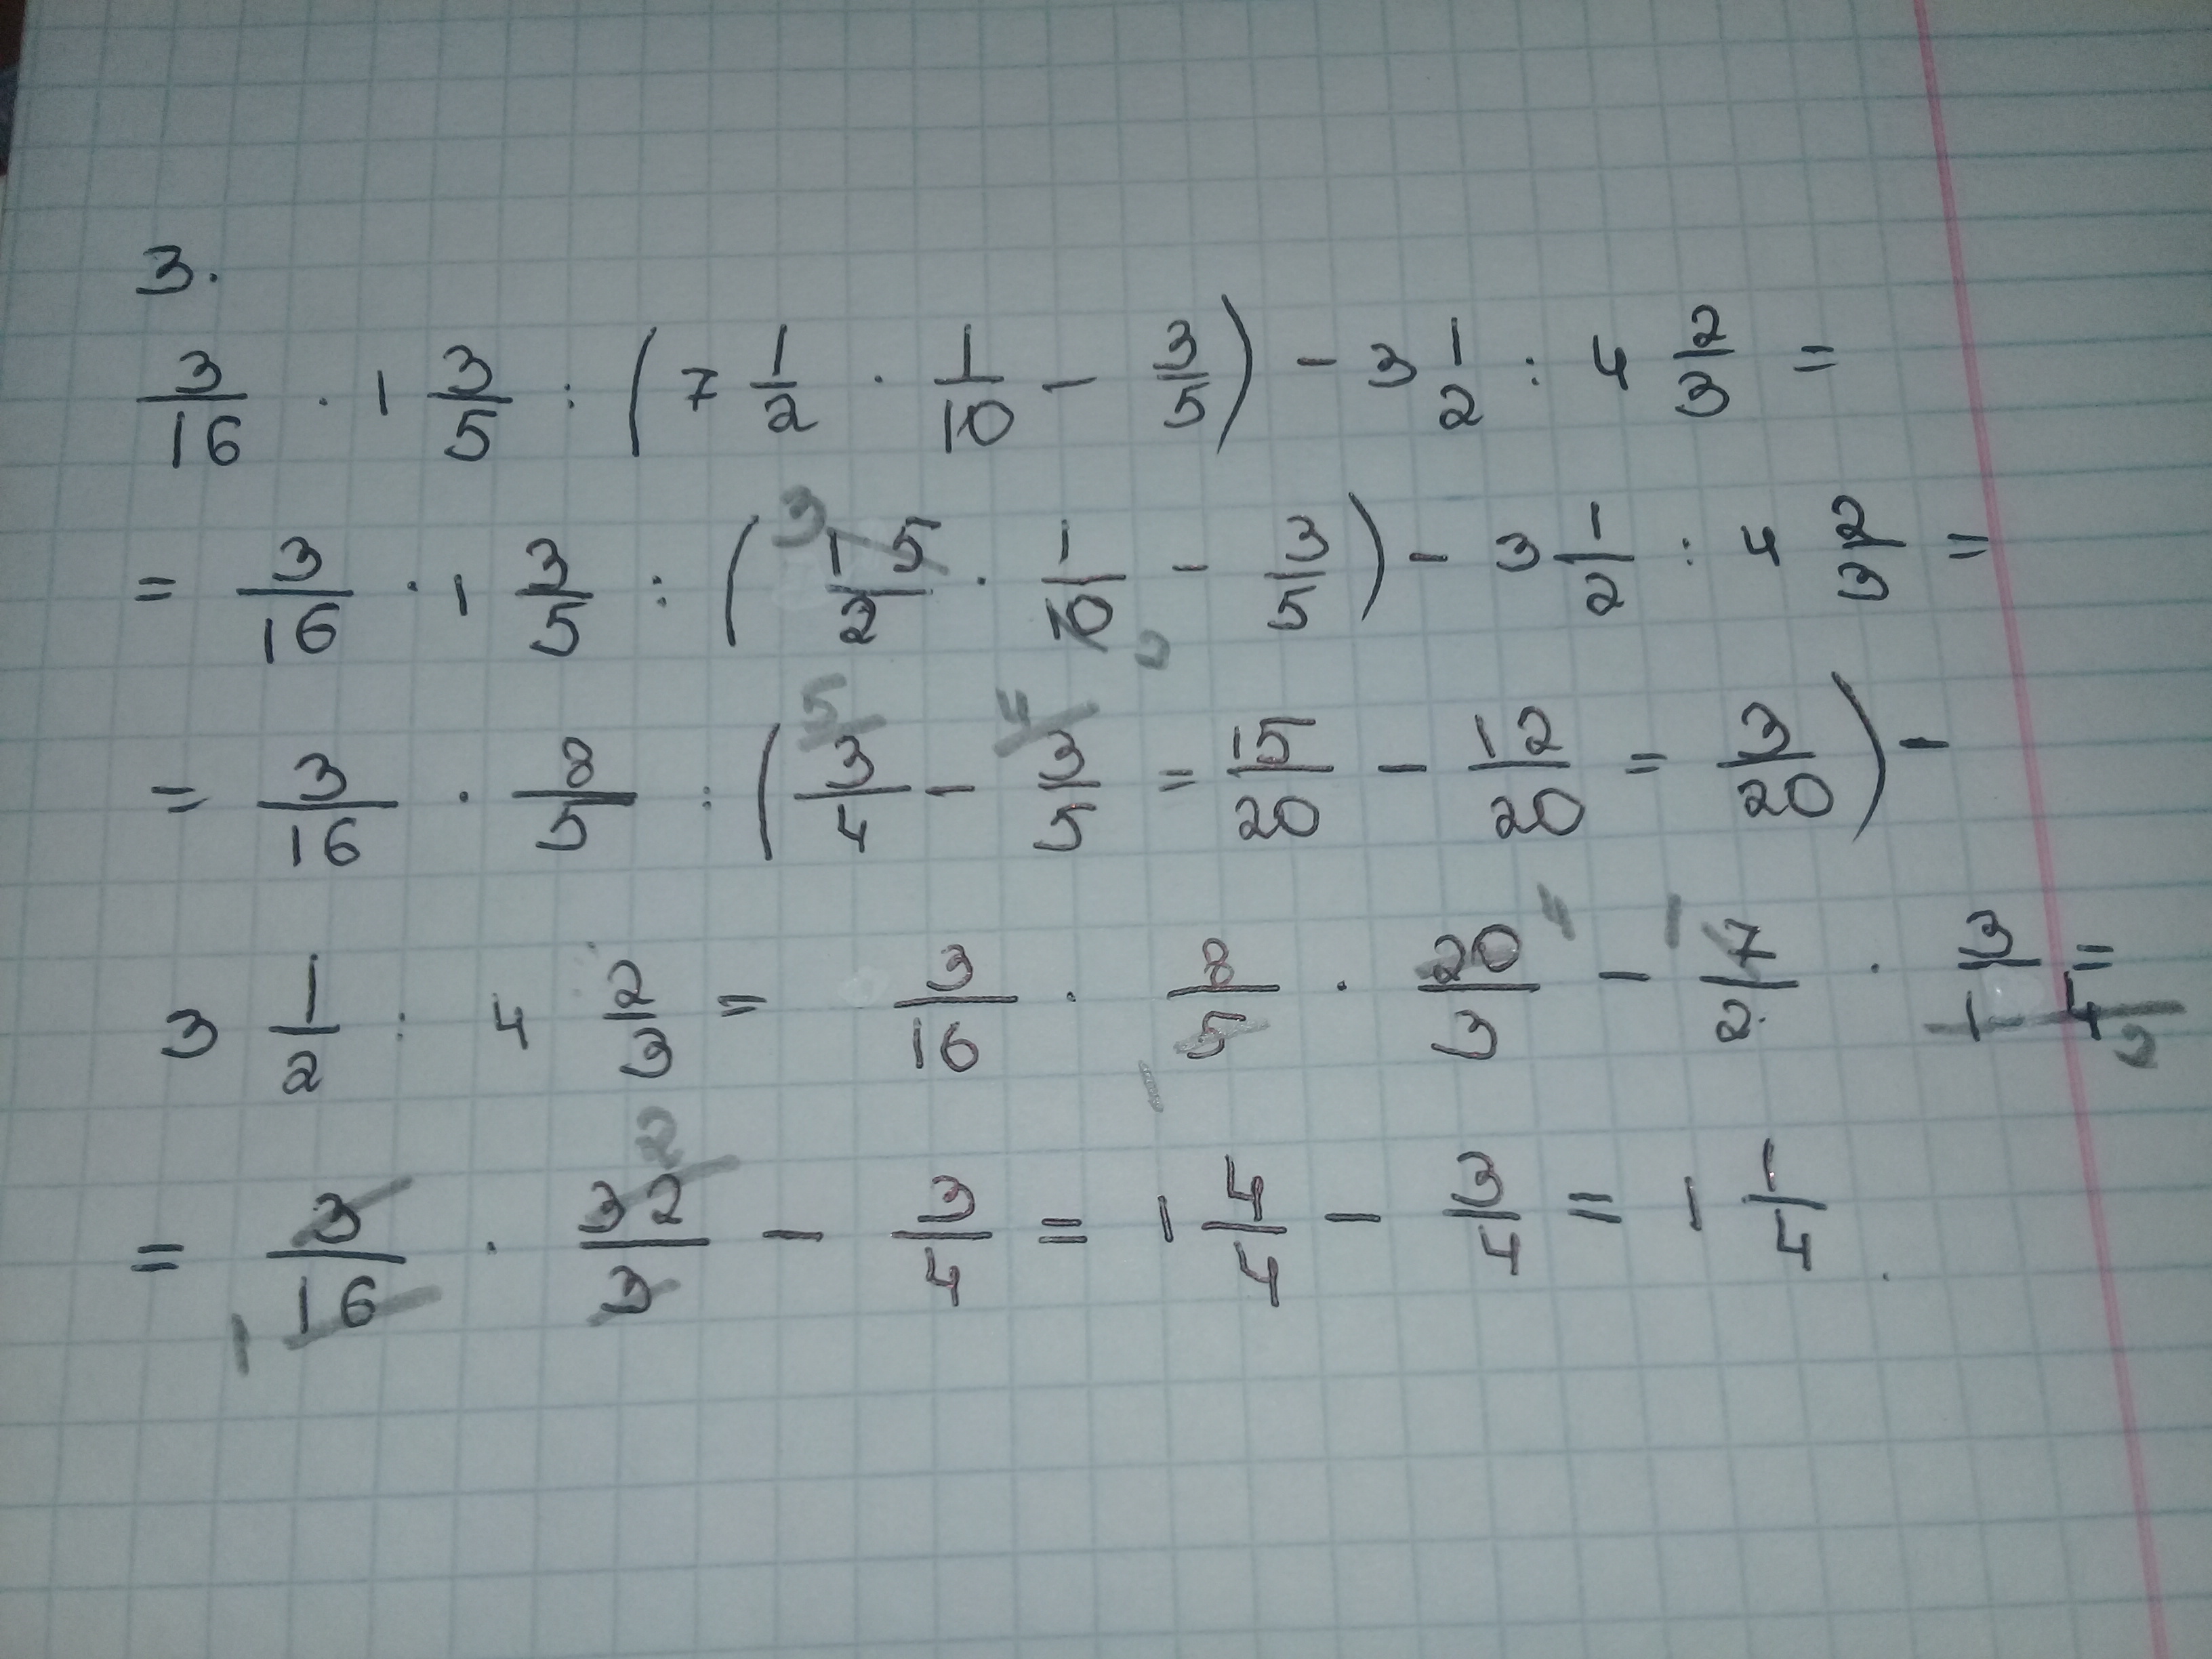 3.
3/16 · 1 3/5 : (7 1/2 · 1/10 - 3/5) - 3 1/2 : 4 2/3 =
= 3/16 · 1 3/5 : (3 15/2 · 1/10 2 - 3/5) - 3 1/2 : 4 2/3 =
= 3/16 · 8/5 : (5 3/4 - 4 3/5 = 15/20 - 12/20 = 3/20) -
3 1/2 : 4 2/3 = 3/16 · 8/5 1 · 20/3 4 - 1 7/2 · 3/14 2 =
= 3/16 1 · 2 32/3 - 3/4 = 1 4/4 - 3/4 = 1 1/4 .